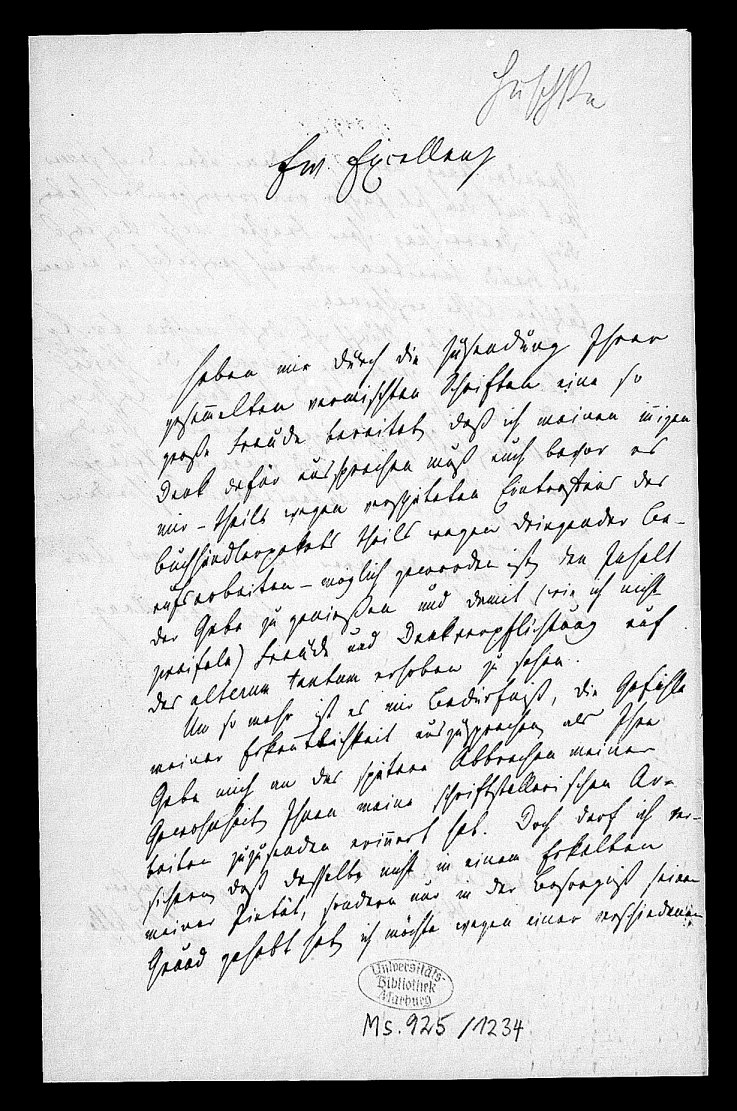 Huschke
Ew Excellenz
haben mir durch die Zusendung Ihrer
gesammelten vermischten Schriften eine so
große Freude bereitet, daß ich meinen innigen
Dank dafür aussprechen muß auch bevor es
mir – theils wegen verspäteten Eintreffens des
Buchhändlerpakets theils wegen dringender Be-
rufsarbeiten – möglich geworden ist, den Inhalt
der Gabe zu genießen und damit (wie ich nicht
zweifele) Freude und Dankverpflichtung auf
das alterum tantum erhoben zu sehen.
Um so mehr ist es mir Bedürfniß, die Gefühle
meiner Erkentlichkeit auszusprechen, als Ihre
Gabe mich an das spätere Abbrechen meiner
Gewohnheit, Ihnen meine schriftstellerischen Ar-
beiten zuzusenden erinnert hat. Doch darf ich ver-
sichern, daß dasselbe nicht in einem Erkalten
meiner Pietät, sondern nur in der Besorgniß seinen
Grund gehabt hat, ich möchte wegen einer verschiedenen
Universitäts-
Bibliothek
Marburg
Ms. 925/1234